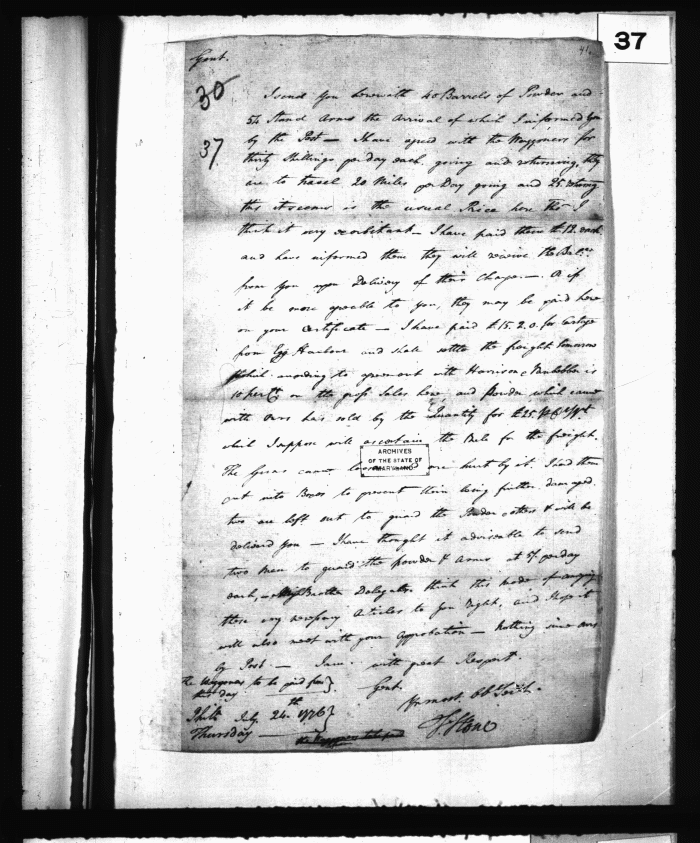 37
41.
Gent.
30
37
I send You herewith 40 Barrels of Powder and
54 Stand Arms the arrival of which I informed You
by the Post — I have agreed with the Waggoners for
thirty Shillings per day each. going and returning, they
are to travel 20 Miles per Day going and 25
this it seems is the usual Price here tho I
think it very exorbitant — I have paid them £12. each
and have informed them they will receive the
from You upon Delivery of their Charge. — or if
it be more agreeable to you, they may be paid here
on your Certificate — I have paid £15.2.0. for Cartage
from Egg Harbour and shall settle the freight tomorrow
which according to agreement with Harrison is
10 on the gross Sales here, and Powder which came
with ours has sold by the Quantity for £25
which I suppose will ascertain the Rule for the freight.
The Guns came are hurt by it. I had them
put into Boxes to prevent their being further damaged.
two are left out to guard the Powder & will be
delivered You — I have thought it adviseable to send
two Men to guard the powder & Arms at 5/ per day
each, Brother Delegates think this mode of
these very necessary Articles to You right, and I hope it
will also meet with your Approbation — Nothing since ours
by Post — I am with great Respect.
the Waggoners to be paid from
this day.
Gent.
Yr most
Phila July 24th 1776
Thursday
T. Stone
ARCHIVES
OF THE STATE OF
MARYLAND